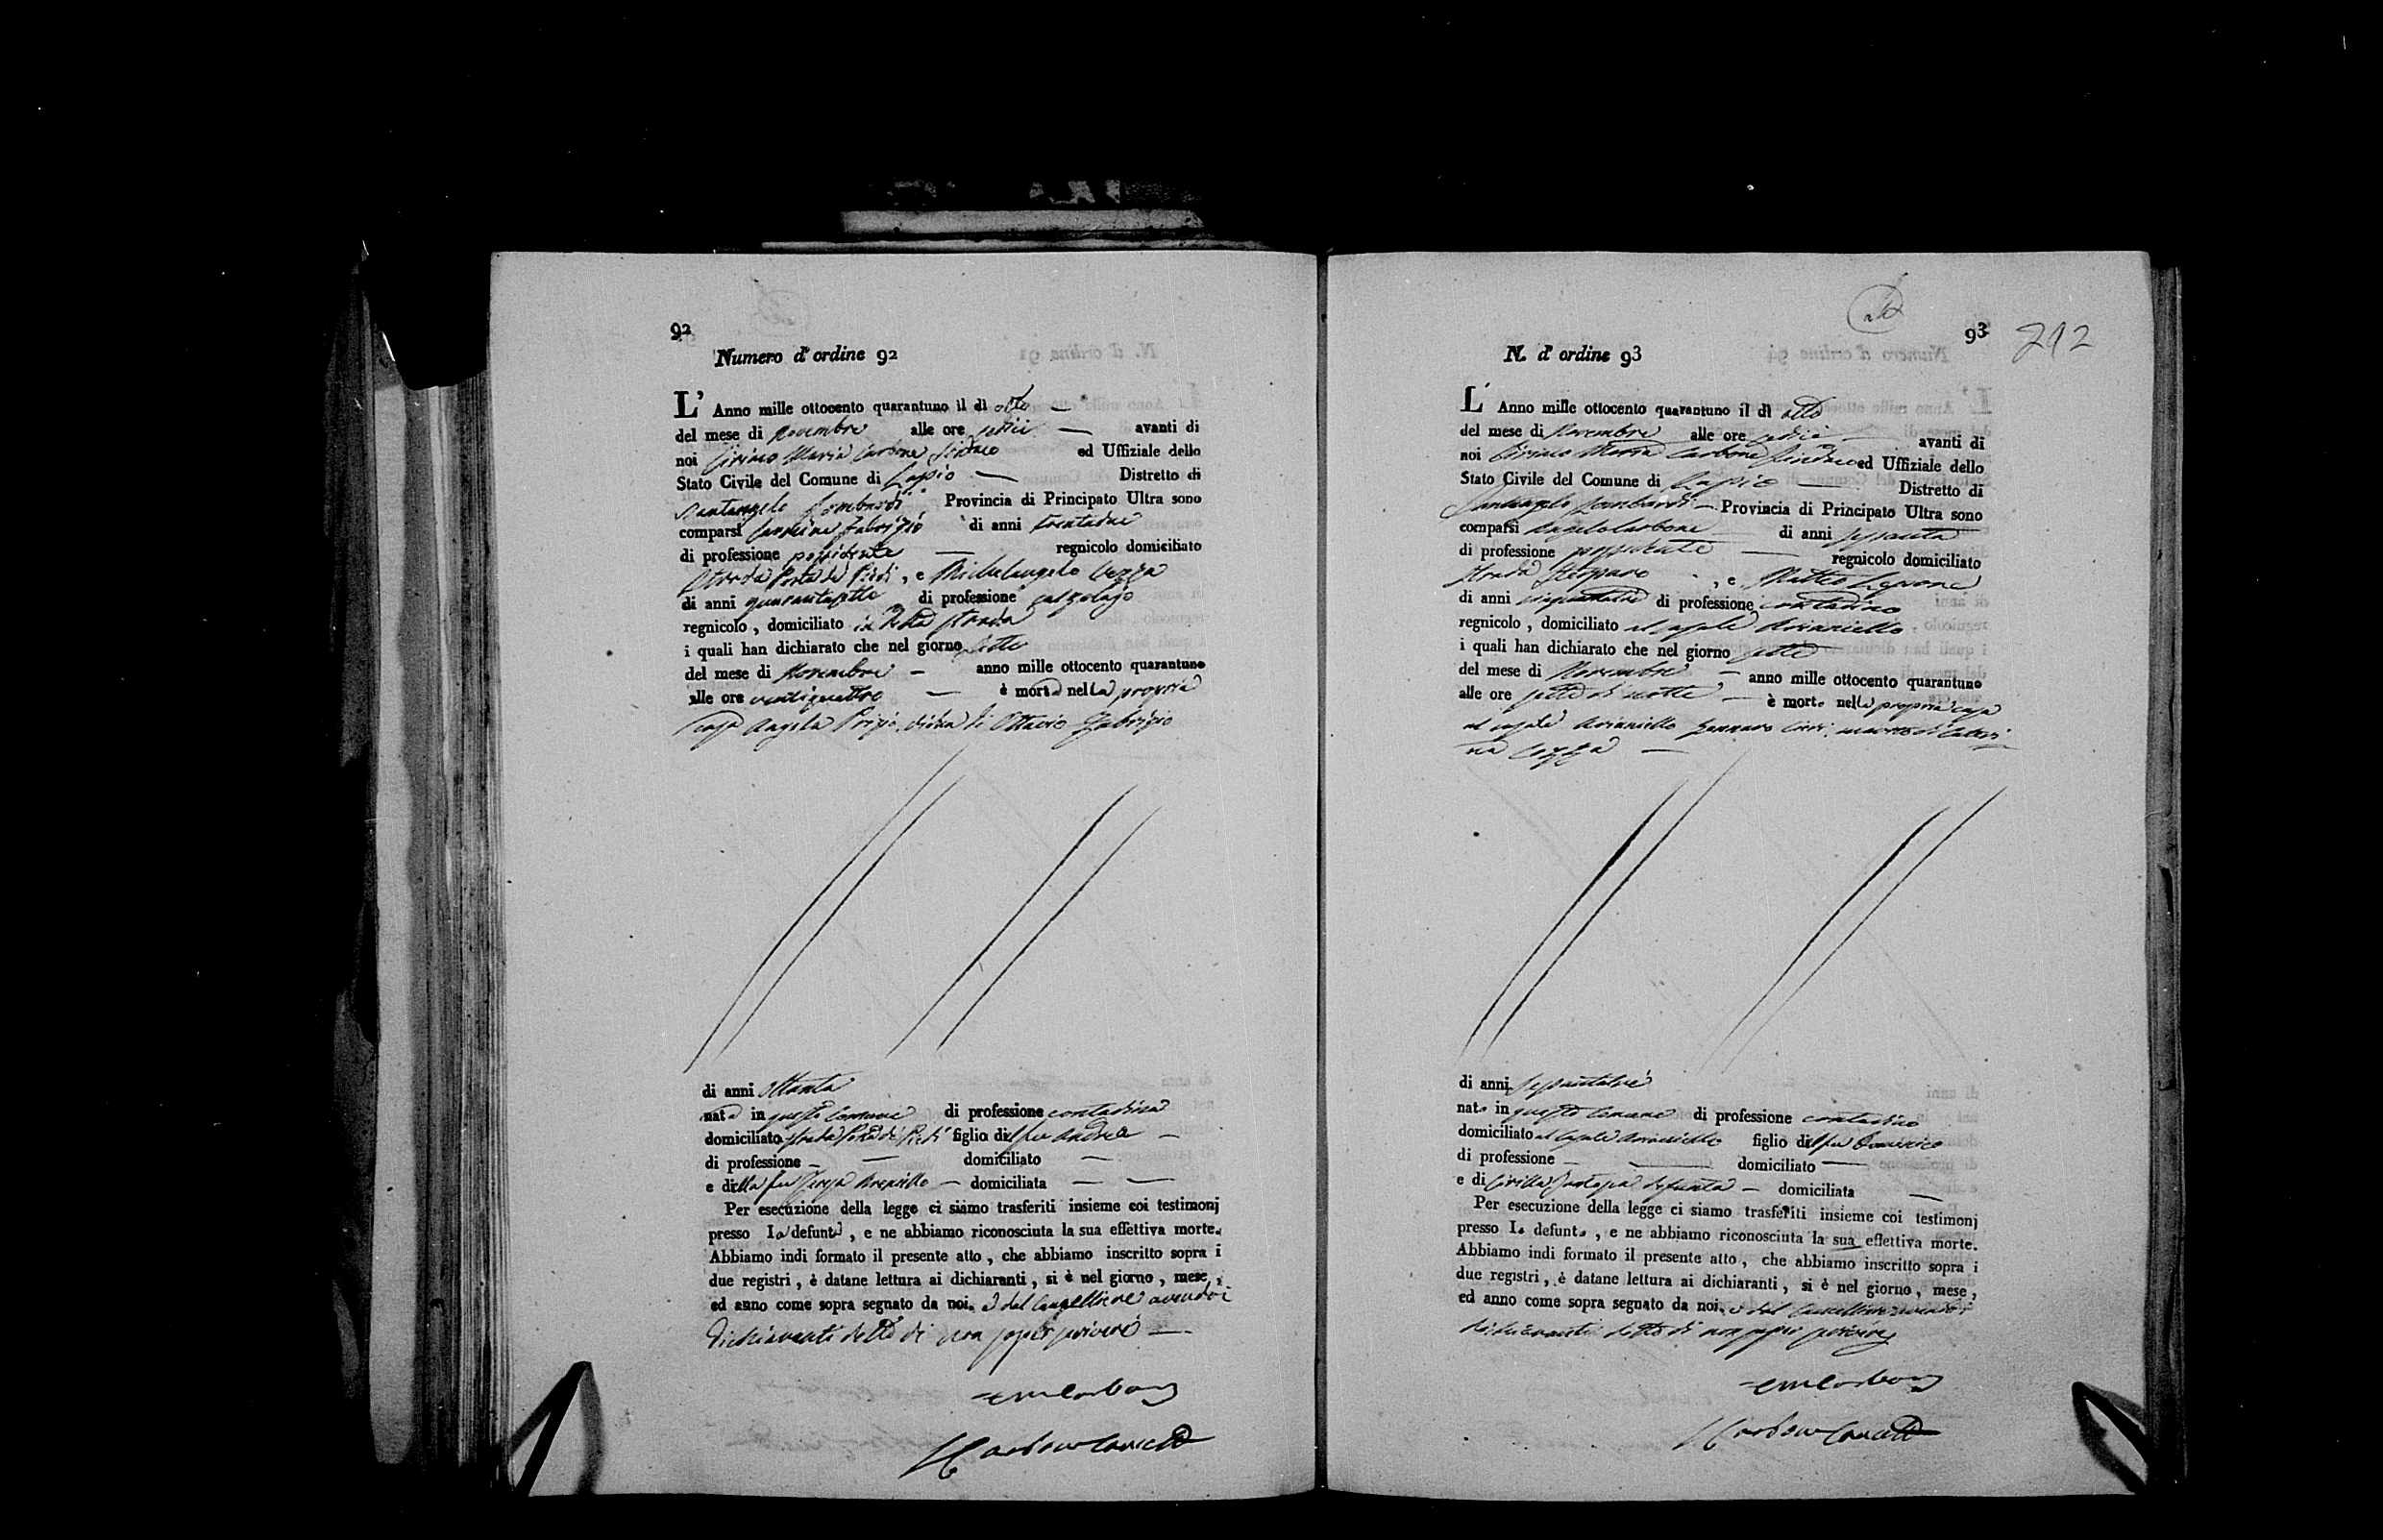 92
Numero d'ordine 92
L' Anno mille ottocento quarantuno il dì otto
del mese di Novembre alle ore sedici avanti di
noi Ciriaco Maria Carbone Sindaco ed Uffiziale dello
Stato Civile del Comune di Lapio Distretto di
Santangelo Lombardi Provincia di Principato Ultra sono
comparsi Carmine Fabrizio di anni trentadue
di professione possidente regnicolo domiciliato
Strada Porta di Piedi, e Michelangelo
di anni quarantasette di professione calzolajo
regnicolo, domiciliato in detta strada
i quali han dichiarato che nel giorno sette
del mese di Novembre anno mille ottocento quarantuno
alle ore ventiquattro è morta nella propria
casa Angela di Ottavio Fabrizio
di anni ottanta
nata in questo Comune di professione contadina
domiciliata strada Porta di Piedi figlia del fu Andrea
di professione domiciliato
e della fu Teresa domiciliata
Per esecuzione della legge ci siamo trasferiti insieme coi testimonj
presso la defunta, e ne abbiamo riconosciuta la sua effettiva morte.
Abbiamo indi formato il presente atto, che abbiamo inscritto sopra i
due registri, è datane lettura ai dichiaranti, si è nel giorno, mese,
ed anno come sopra segnato da noi e dal Cancelliere avendo i
dichiaranti detto di non saper scrivere
CM Carbone
Carbone Canc
93
212
N. d'ordine 93
L' Anno mille ottocento quarantuno il dì otto
del mese di Novembre alle ore sedici avanti di
noi Ciriaco Maria Carbone Sindaco ed Uffiziale dello
Stato Civile del Comune di Lapio Distretto di
Santangelo Lombardi Provincia di Principato Ultra sono
comparsi Angelo Carbone di anni sessanta
di professione possidente regnicolo domiciliato
strada, e Matteo
di anni di professione contadino
regnicolo, domiciliato al casale Arianiello
i quali han dichiarato che nel giorno sette
del mese di Novembre anno mille ottocento quarantuno
alle ore sette di notte è morto nella propria casa
al casale Arianiello Gennaro marito di Cateri
na
di anni sessantatre
nato in questo Comune di professione contadino
domiciliato al Casale Arianiello figlio del fu Domenico
di professione domiciliato
e di Cirilla defunta domiciliata
Per esecuzione della legge ci siamo trasferiti insieme coi testimonj
presso lo defunto, e ne abbiamo riconosciuta la sua effettiva morte.
Abbiamo indi formato il presente atto, che abbiamo inscritto sopra i
due registri, è datane lettura ai dichiaranti, si è nel giorno, mese,
ed anno come sopra segnato da noi e dal Cancelliere avendo i
dichiaranti detto di non saper scrivere
CM Carbone
Carbone Canc